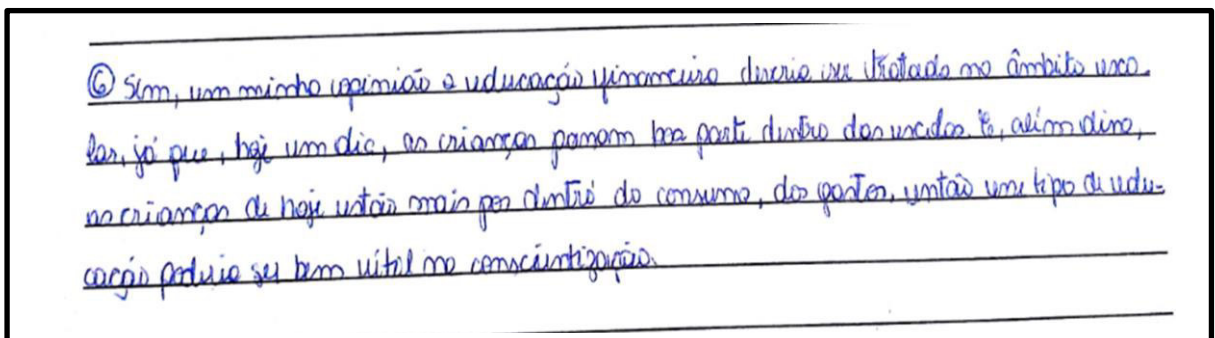 ⑥ Sim, em minha opinião a educação financeira deveria ser tratada no âmbito esco-
lar, já que, hoje em dia, as crianças passam boa parte dentro das escolas. E, além disso,
as crianças de hoje estão mais por dentro do consumo, dos gastos, então esse tipo de edu-
cação poderia ser bem útil na conscientização.